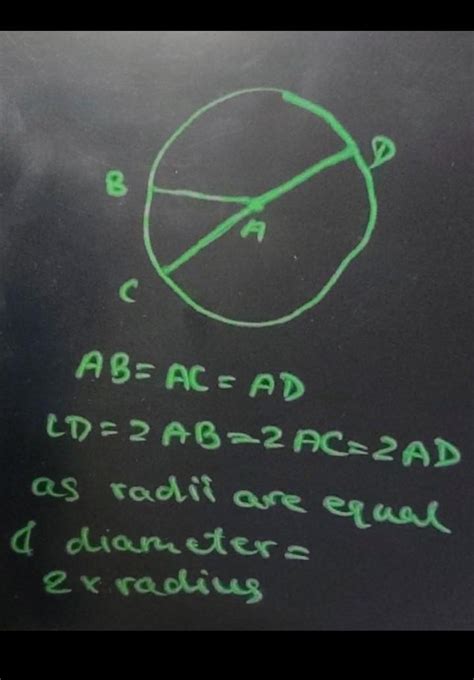 D
B
A
C
AB = AC = AD
CD = 2 AB = 2 AC = 2 AD
as radii are equal
& diameter =
2 x radius